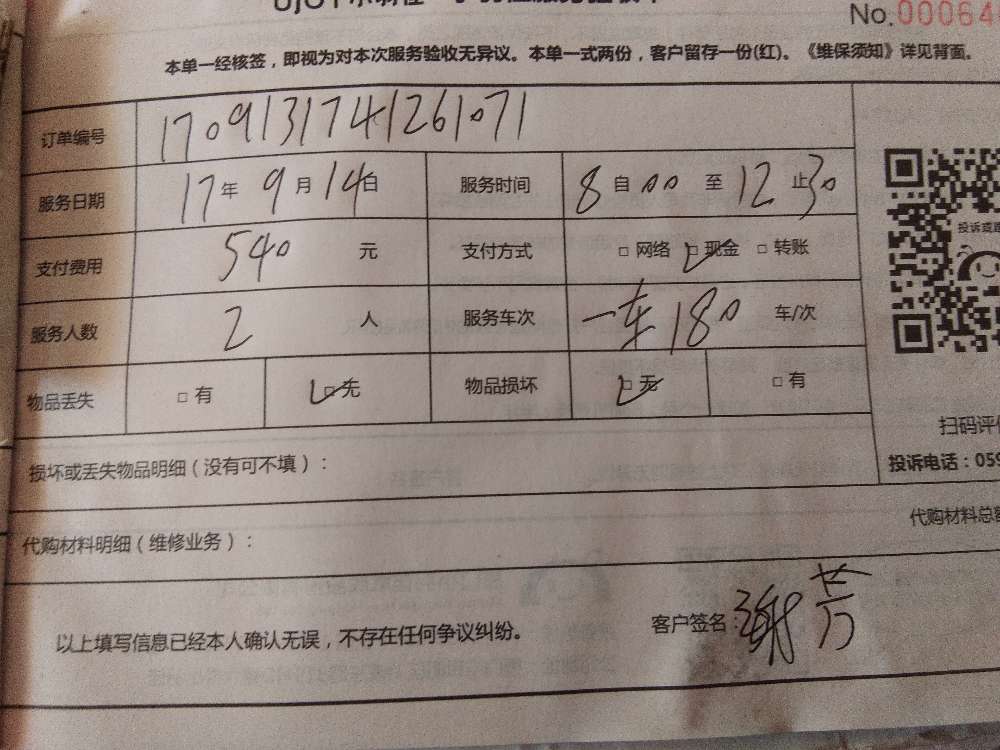 No.00064
本单一经核签，即视为对本次服务验收无异议。本单一式两份，客户留存一份(红)。《维保须知》详见背面。
订单编号 1709131741261071
服务日期 17年 9月 14日 服务时间 8自00至12止30
支付费用 540 元 支付方式 □网络 □现金 □转账
服务人数 2 人 服务车次 一车180 车/次
物品丢失 □有 □无 物品损坏 □无 □有
扫码评
损坏或丢失物品明细（没有可不填）：
投诉电话：059
代购材料明细（维修业务）： 代购材料总
以上填写信息已经本人确认无误，不存在任何争议纠纷。 客户签名：谢芳